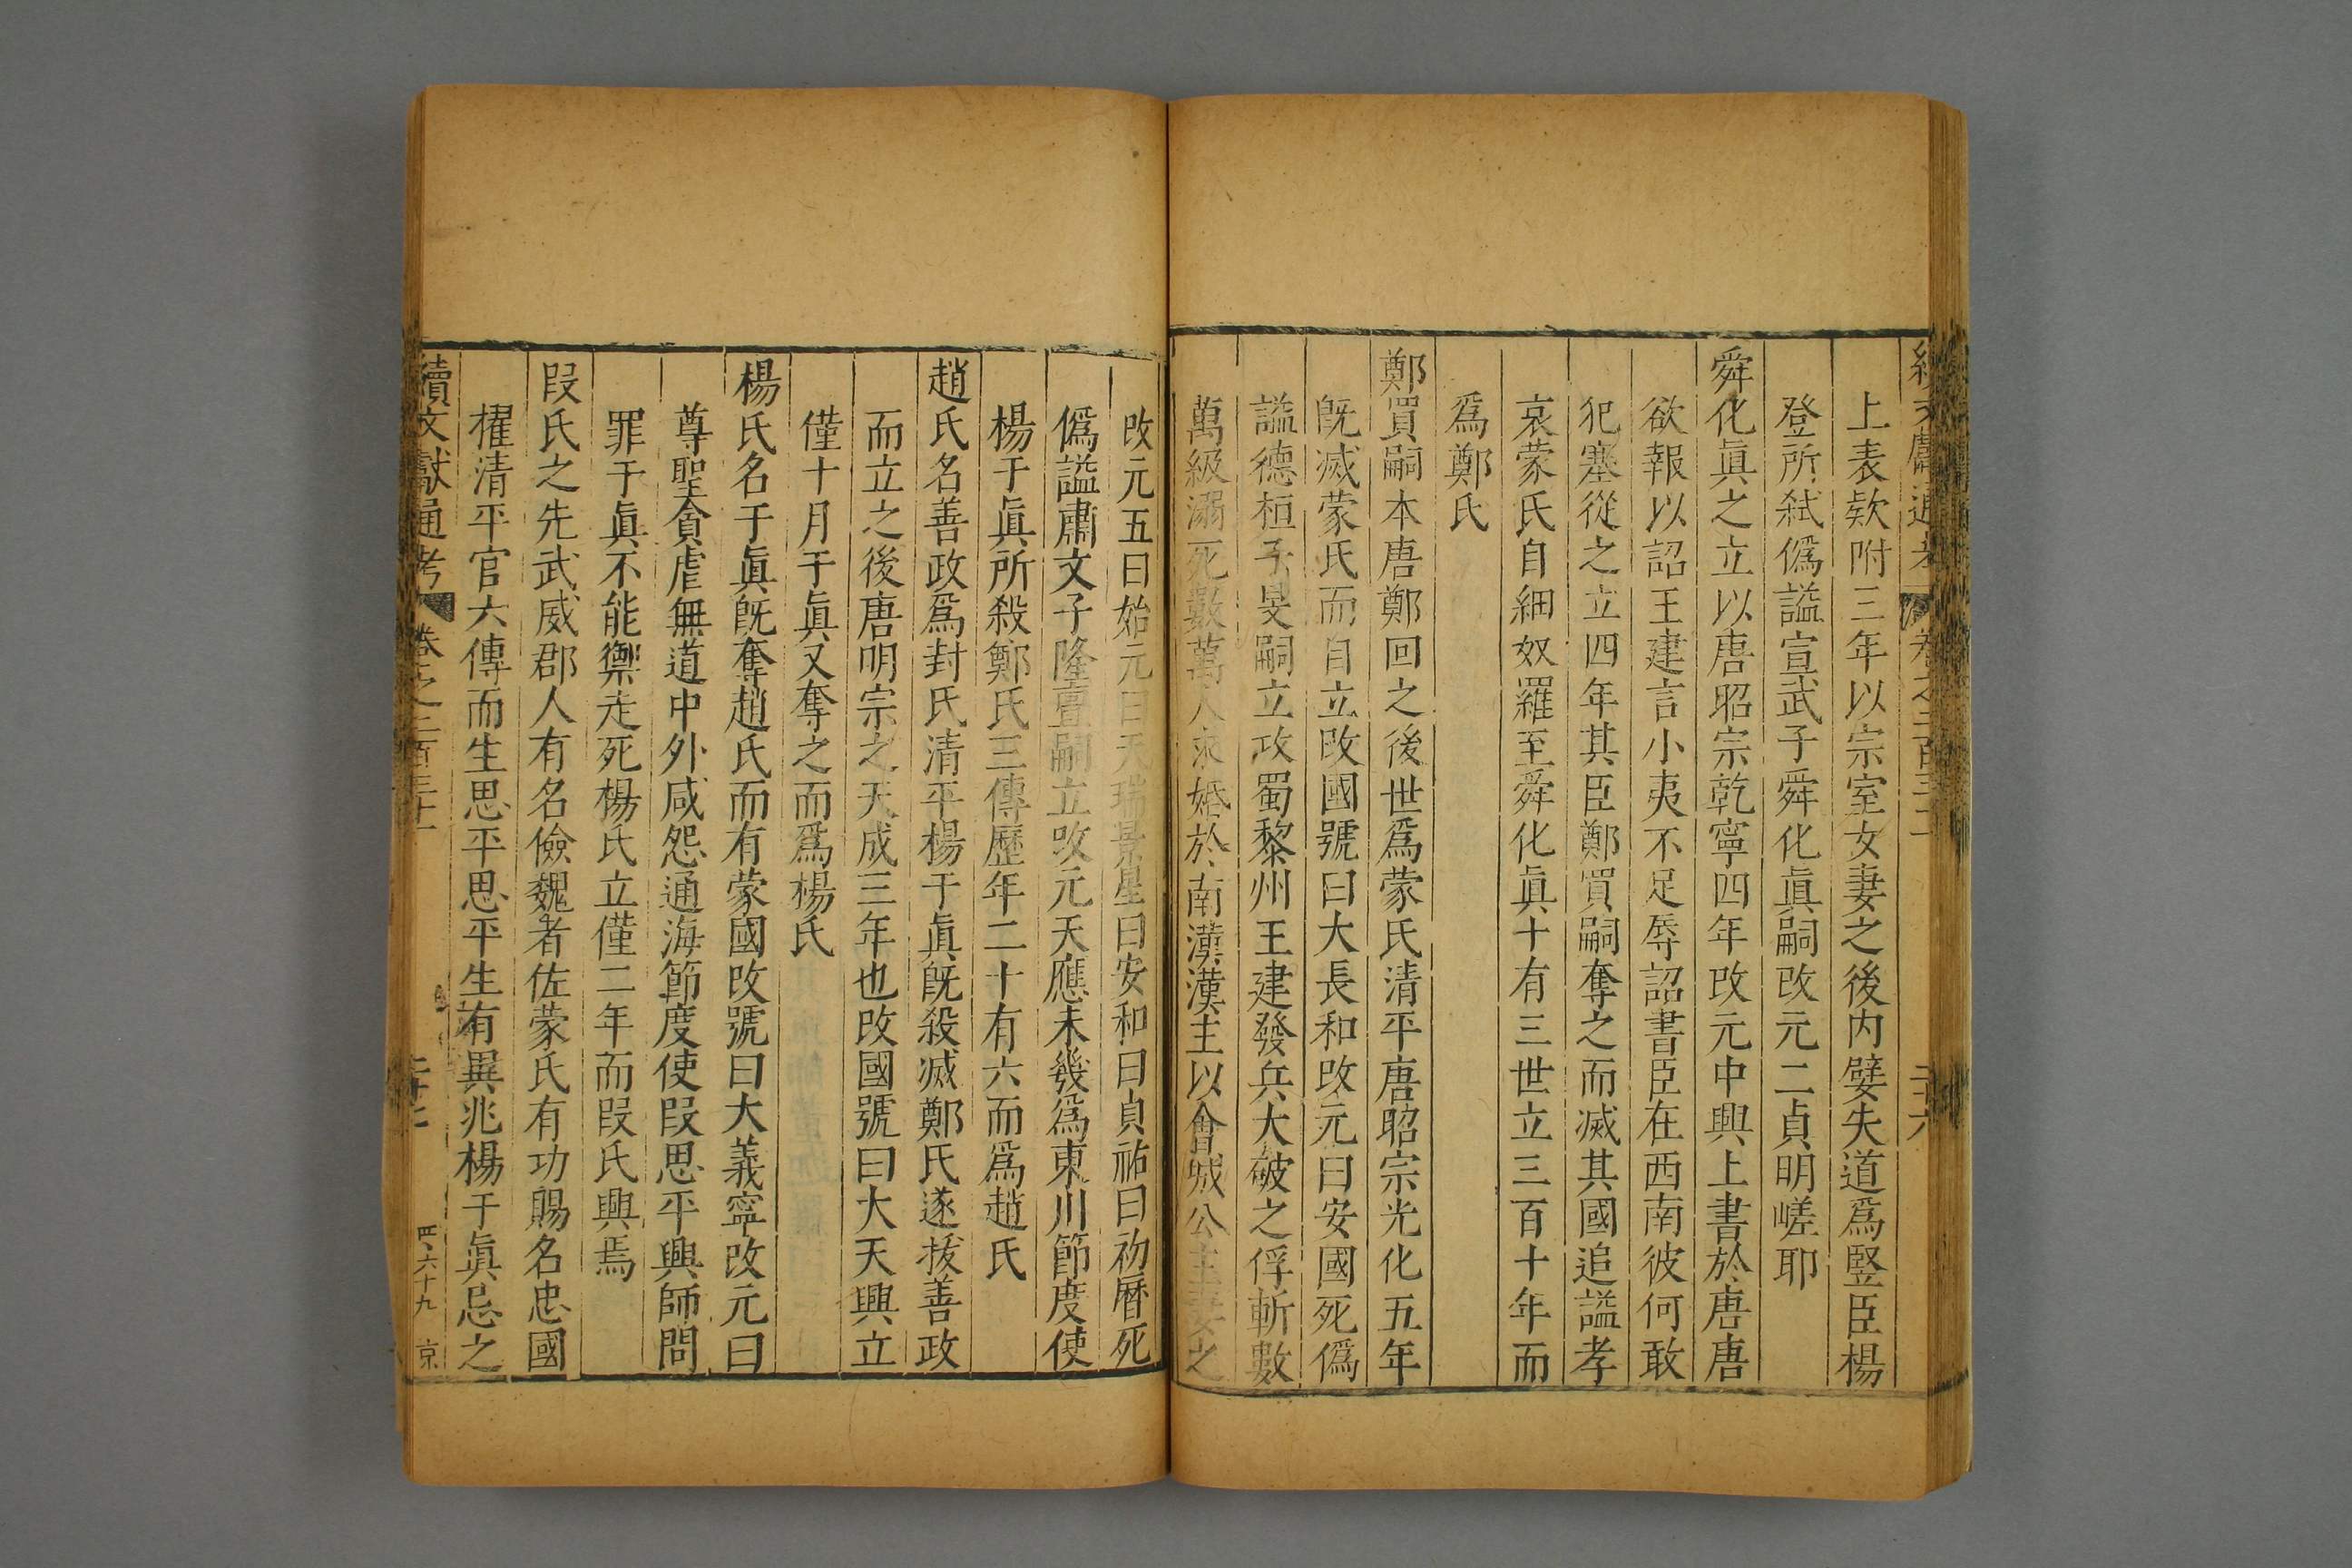 續文獻通考 卷之二百三十 二十六
上表欵附三年以宗室女妻之後内嬖失道爲竪臣楊
登所弑僞謚宣武子舜化眞嗣改元二貞明嵯耶
舜化眞之立以唐昭宗乾寧四年改元中興上書於唐唐
欲報以詔王建言小夷不足辱詔書臣在西南彼何敢
犯塞從之立四年其臣鄭買嗣奪之而滅其國追謚孝
哀蒙氏自細奴羅至舜化眞十有三世立三百十年而
爲鄭氏
鄭買嗣本唐鄭回之後世爲蒙氏清平唐昭宗光化五年
旣滅蒙氏而自立改國號曰大長和改元曰安國死僞
謚德桓子旻嗣立攻蜀黎州王建發兵大破之俘斬數
萬級溺死數萬人求婚於南漢漢主以會城公主妻之
改元五曰始元曰天瑞景星曰安和曰貞祐曰初曆死
僞謚肅文子隆亶嗣立改元天應未幾爲東川節度使
楊于眞所殺鄭氏三傳歷年二十有六而爲趙氏
趙氏名善政爲封氏清平楊于眞旣殺滅鄭氏遂拔善政
而立之後唐明宗之天成三年也改國號曰大天興立
僅十月于眞又奪之而爲楊氏
楊氏名于眞旣奪趙氏而有蒙國改號曰大義寧改元曰
尊聖貪虐無道中外咸怨通海節度使段思平興師問
罪于眞不能禦走死楊氏立僅二年而段氏興焉
段氏之先武威郡人有名儉魏者佐蒙氏有功賜名忠國
擢清平官六傳而生思平思平生有異兆楊于眞忌之
續文獻通考 卷之二百三十 二十七 四六十九 京